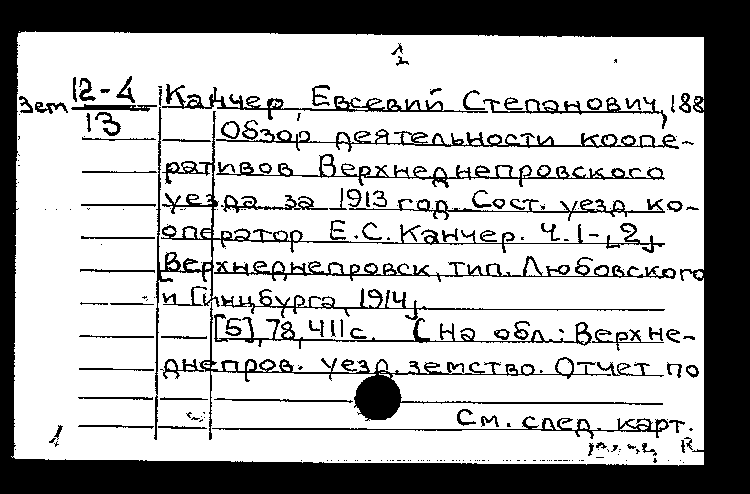 1
2
Зет 12-4 Канчер, Евсевий Степанович, 188
13 Обзор деятельности коопе-
ративов Верхнеднепровского
уезда за 1913 год. Сост. уезд. ко-
оператор Е.С. Канчер. Ч.1-[2]
[Верхнеднепровск, тип. Любовского
и Гинцбурга, 1914].
[5], 78, 411 с. (На обл.: Верхне-
днепров. уезд. земство. Отчет по
См. след. карт.
1 R